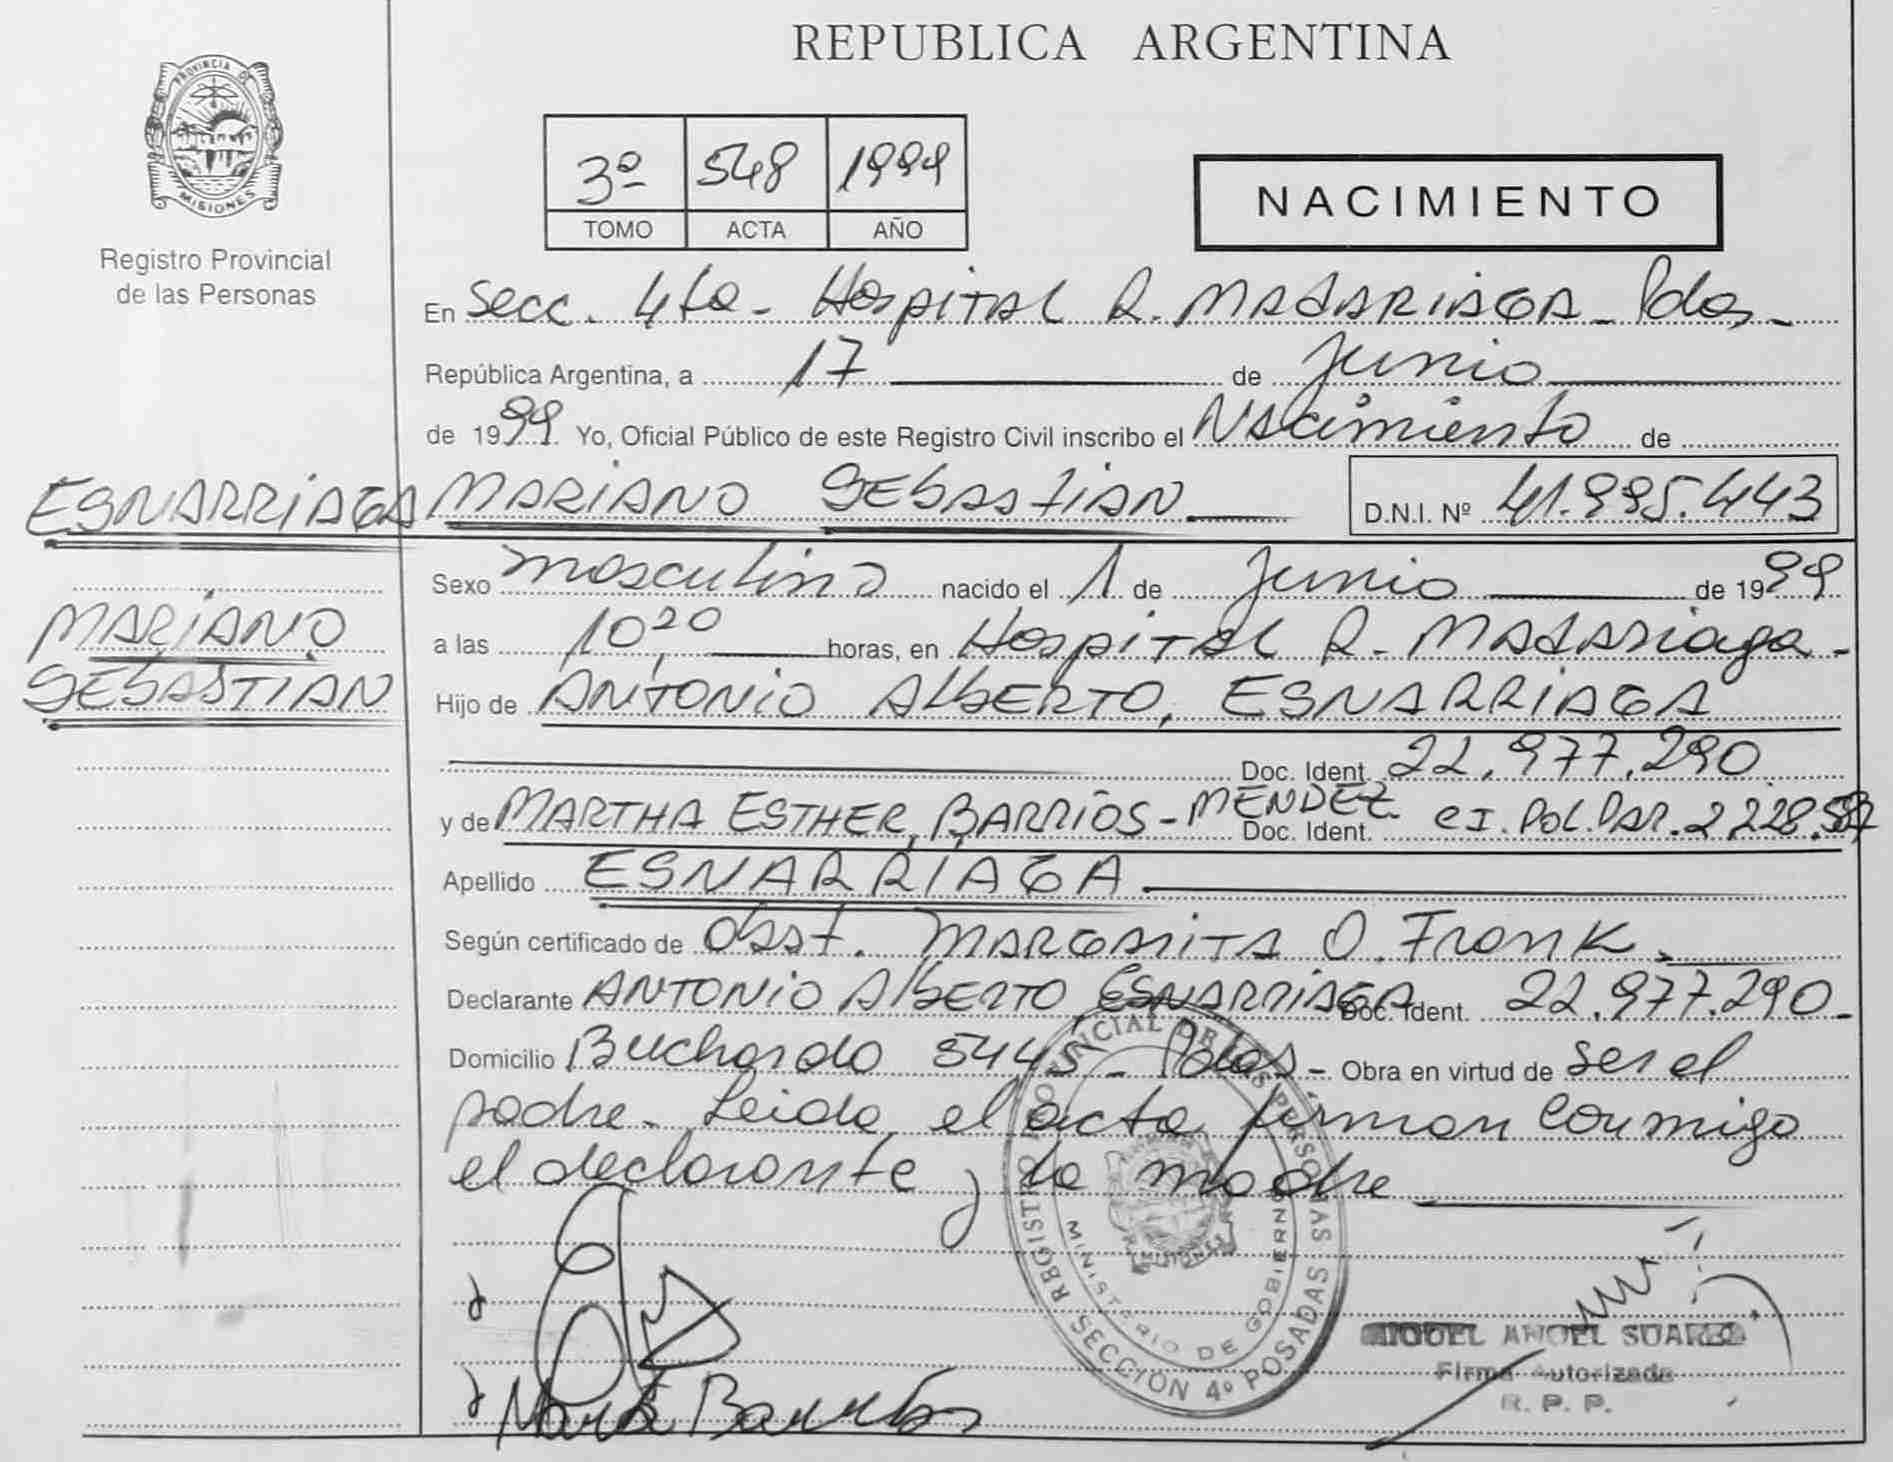 REPUBLICA ARGENTINA
PROVINCIA D
MISIONES
Registro Provincial
de las Personas
3º 548 1999
TOMO ACTA AÑO
NACIMIENTO
En Secc. 4ta - Hospital R. MADARIAGA - Pdas -
República Argentina, a 17 de Junio
de 1999 Yo, Oficial Público de este Registro Civil inscribo el Nacimiento de
ESNARRIAGA MARIANO SEBASTIAN D.N.I. Nº 41.995.443
Sexo masculino nacido el 1 de Junio de 1999
MARIANO
SEBASTIAN
a las 10,20 horas, en Hospital R. Madariaga -
Hijo de ANTONIO ALBERTO, ESNARRIAGA
Doc. Ident. 22.977.290
y de MARTHA ESTHER, BARRIOS - MENDEZ Doc. Ident. CI. Pol. Par. 2228.587
Apellido ESNARRIAGA
Según certificado de Obst. MARGARITA O. Frank.
Declarante ANTONIO Alberto ESNARRIAGA Doc. Ident. 22.977.290 -
Domicilio Buchardo 5445 - Pdas - Obra en virtud de ser el
padre - Leida el acta firman conmigo
el declarante y la madre
REGISTRO PROVINCIAL DE LAS PERSONAS
MINISTERIO DE GOBIERNO
MISIONES
SECCIÓN 4º POSADAS
Marta Barrios
MIGUEL ANGEL SUAREZ
Firma Autorizada
R. P. P.